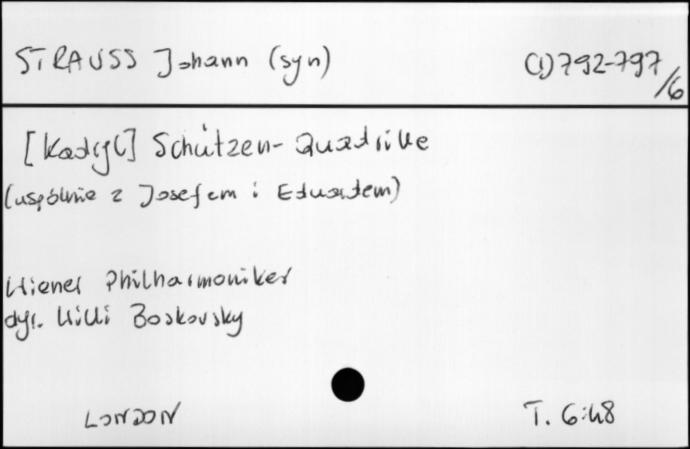 STRAUSS Johann (syn)
(CD) 792-797/6
[Kadryl] Schützen-Quadrille
(wspólnie z Josefem i Eduardem)
Wiener Philharmoniker
dyr. Willi Boskovsky
LONDON
T. 6:48